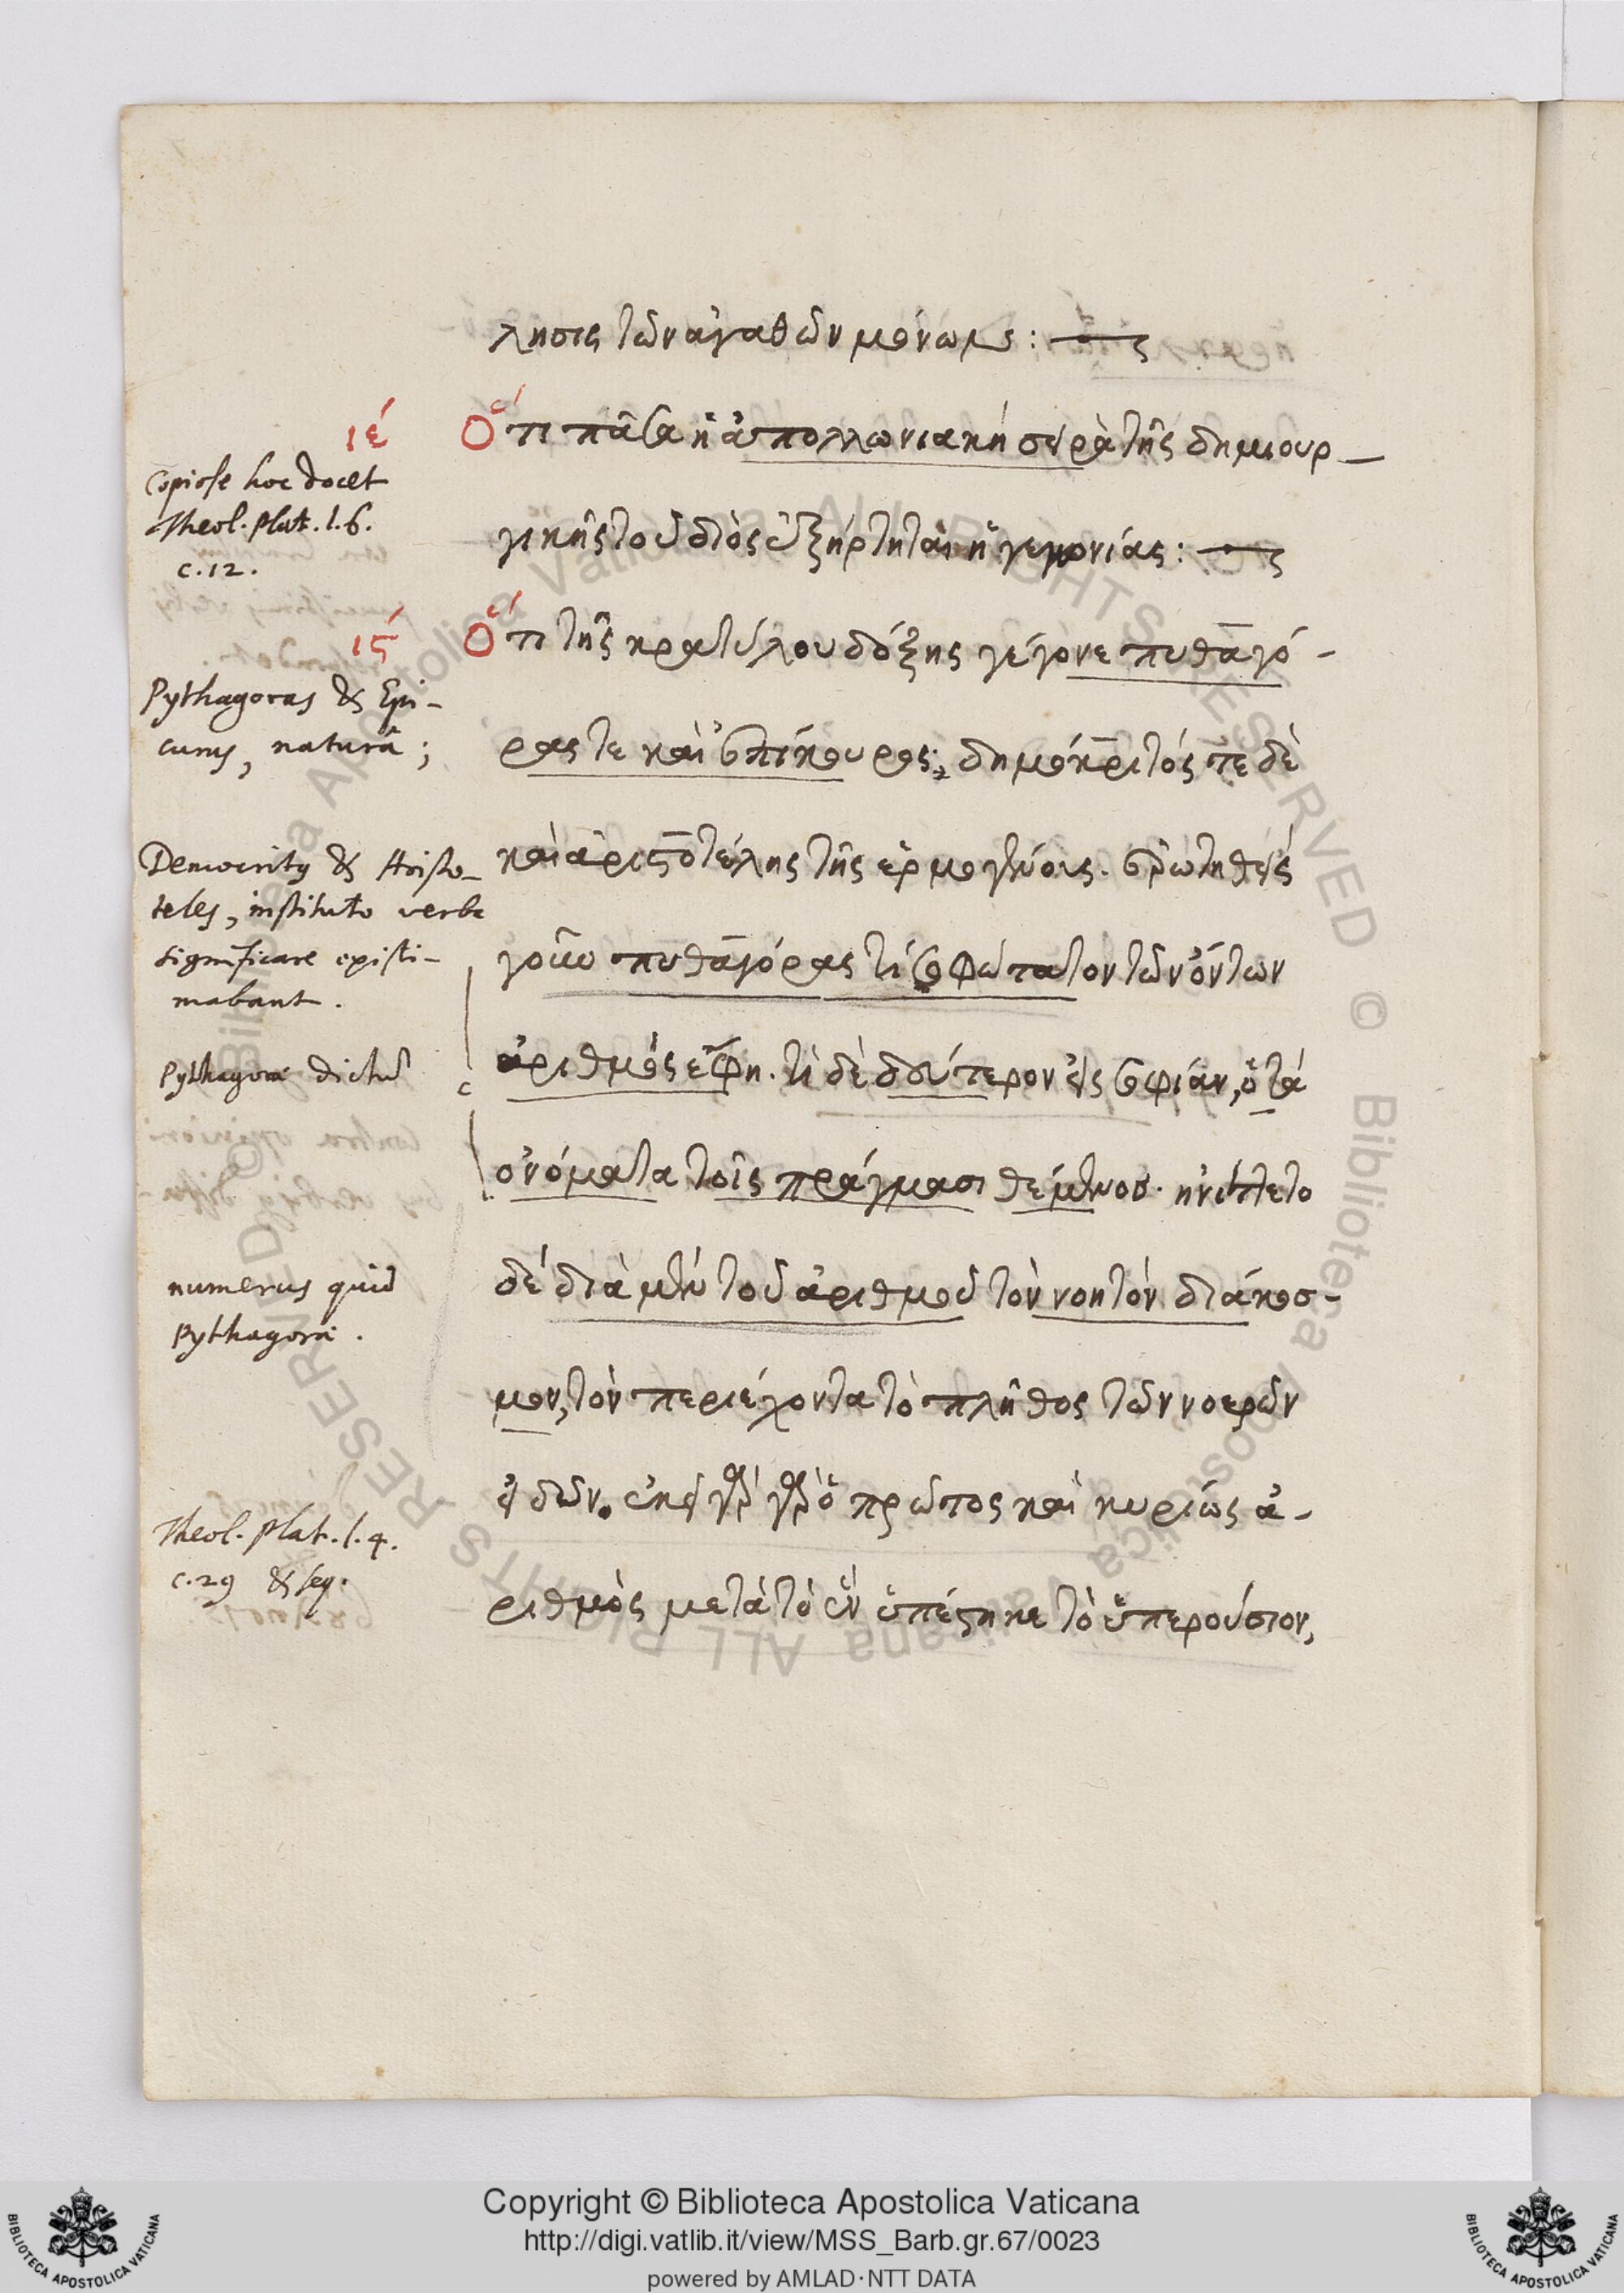 λησις τῶν ἀγαθῶν μόνων :
ιε´
Ὅτι πᾶσα ἡ ἀπολλωνιακὴ σειρὰ τῆς δημιουρ-
Copiose hoc docet
Theol. plat. l.6.
c.12.
γικῆς τοῦ διὸς ἐξήρτηται ἡγεμονίας :
ις´
Ὅτι τῆς κρατύλου δόξης γέγονε πυθαγό-
Pythagoras & Epi-
curus, naturâ;
ρας τε καὶ ἐπίκουρος; δημόκριτός τε δὲ
Democritus & Aristo-
teles, instituto verba
significare existi-
mabant.
καὶ ἀριστοτέλης τῆς ἑρμογένους. ἐρωτηθεὶς
γοῦν πυθαγόρας τί σοφώτατον τῶν ὄντων
Pythagorae dictum
ἀριθμός ἔφη. τί δὲ δεύτερον εἰς σοφίαν, ὁ τὰ
ὀνόματα τοῖς πράγμασι θέμενος. ᾐνίττετο
numerus quid
Pythagorae.
δέ διὰ μὲν τοῦ ἀριθμοῦ τὸν νοητὸν διάκοσ-
μον, τὸν περιέχοντα τὸ πλῆθος τῶν νοερῶν
εἰδῶν. ἐκεῖ γὰρ γὰρ ὁ πρῶτος καὶ κυρίως ἀ-
Theol. plat. l.4.
c.29 & seq.
ριθμὸς μετὰ τὸ ἓν ὑπέστηκε τὸ ὑπερούσιον,
Copyright © Biblioteca Apostolica Vaticana
http://digi.vatlib.it/view/MSS_Barb.gr.67/0023
powered by AMLAD·NTT DATA